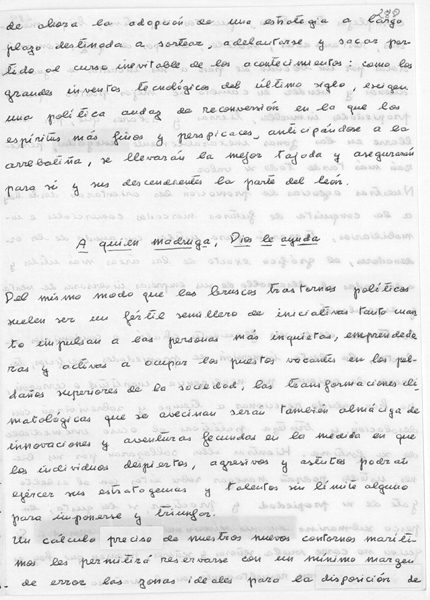 239
de ahora la adopción de una estrategia a largo
plazo destinada a sortear, adelantarse y sacar par-
tido al curso inevitable de los acontecimientos: como los
grandes inventos tecnológicos del último siglo, exigen
una política audaz de reconversión en la que los
espíritus más finos y perspicaces, anticipándose a la
arrebatiña, se llevarán la mejor tajada y asegurarán
para sí y sus descendientes la parte del león.
A quien madruga, Dios le ayuda
Del mismo modo que los bruscos trastornos políticos
suelen ser un fértil semillero de iniciativas en cuan-
to impulsan a las personas más inquietas, emprendedo-
ras y activas a ocupar los puestos vacantes en los pel-
daños superiores de la sociedad, las transformaciones cli
matológicas que se avecinan serán también almáciga de
innovaciones y aventuras fecundas en la medida en que
los individuos despiertos, agresivos y astutos podrán
ejercer sus estratagemas y talentos sin límite alguno
para imponerse y triunfar.
Un cálculo preciso de nuestros nuevos contornos maríti-
mos les permitirá reservarse con un mínimo margen
de error las zonas ideales para la disposición de